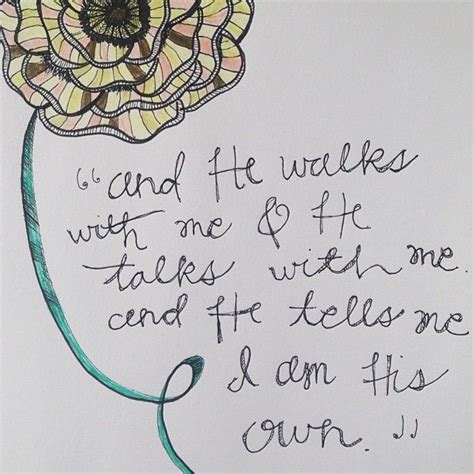 “and He walks
with me & He
talks with me.
and He tells me
I am His
own.”